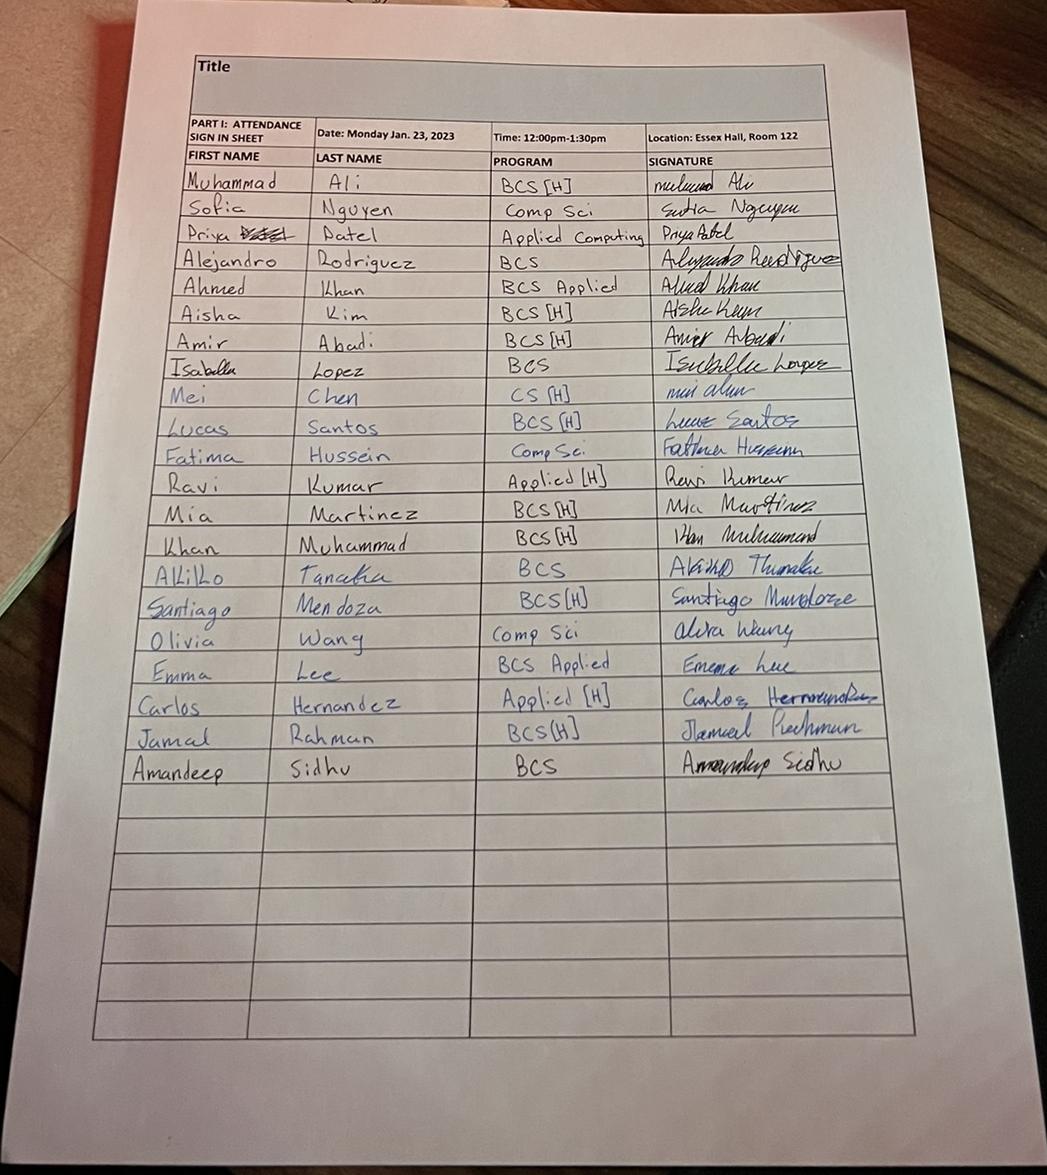 Title
PART I: ATTENDANCE SIGN IN SHEET Date: Monday Jan. 23, 2023 Time: 12:00pm-1:30pm Location: Essex Hall, Room 122
FIRST NAME LAST NAME PROGRAM SIGNATURE
Muhammad Ali BCS [H] Ali
Sofia Nguyen Comp Sci Nguyen
Priya Patel Applied Computing Priya Patel
Alejandro Rodriguez BCS Alejandro Rodriguez
Ahmed Khan BCS Applied Ahmed Khan
Aisha Kim BCS [H] Aisha
Amir Abadi BCS [H] Amir Abadi
Isabella Lopez BCS Isabella Lopez
Mei Chen CS [H]
Lucas Santos BCS [H] Santos
Fatima Hussein Comp Sci. Fatima Hussein
Ravi Kumar Applied [H] Ravi Kumar
Mia Martinez BCS [H] Mia Martinez
Khan Muhammad BCS [H] Khan Muhammad
Akiko Tanaka BCS Akiko
Santiago Mendoza BCS [H] Santiago
Olivia Wang Comp Sci Wang
Emma Lee BCS Applied Lee
Carlos Hernandez Applied [H] Carlos Hernandez
Jamal Rahman BCS [H] Jamal
Amandeep Sidhu BCS Amandeep Sidhu